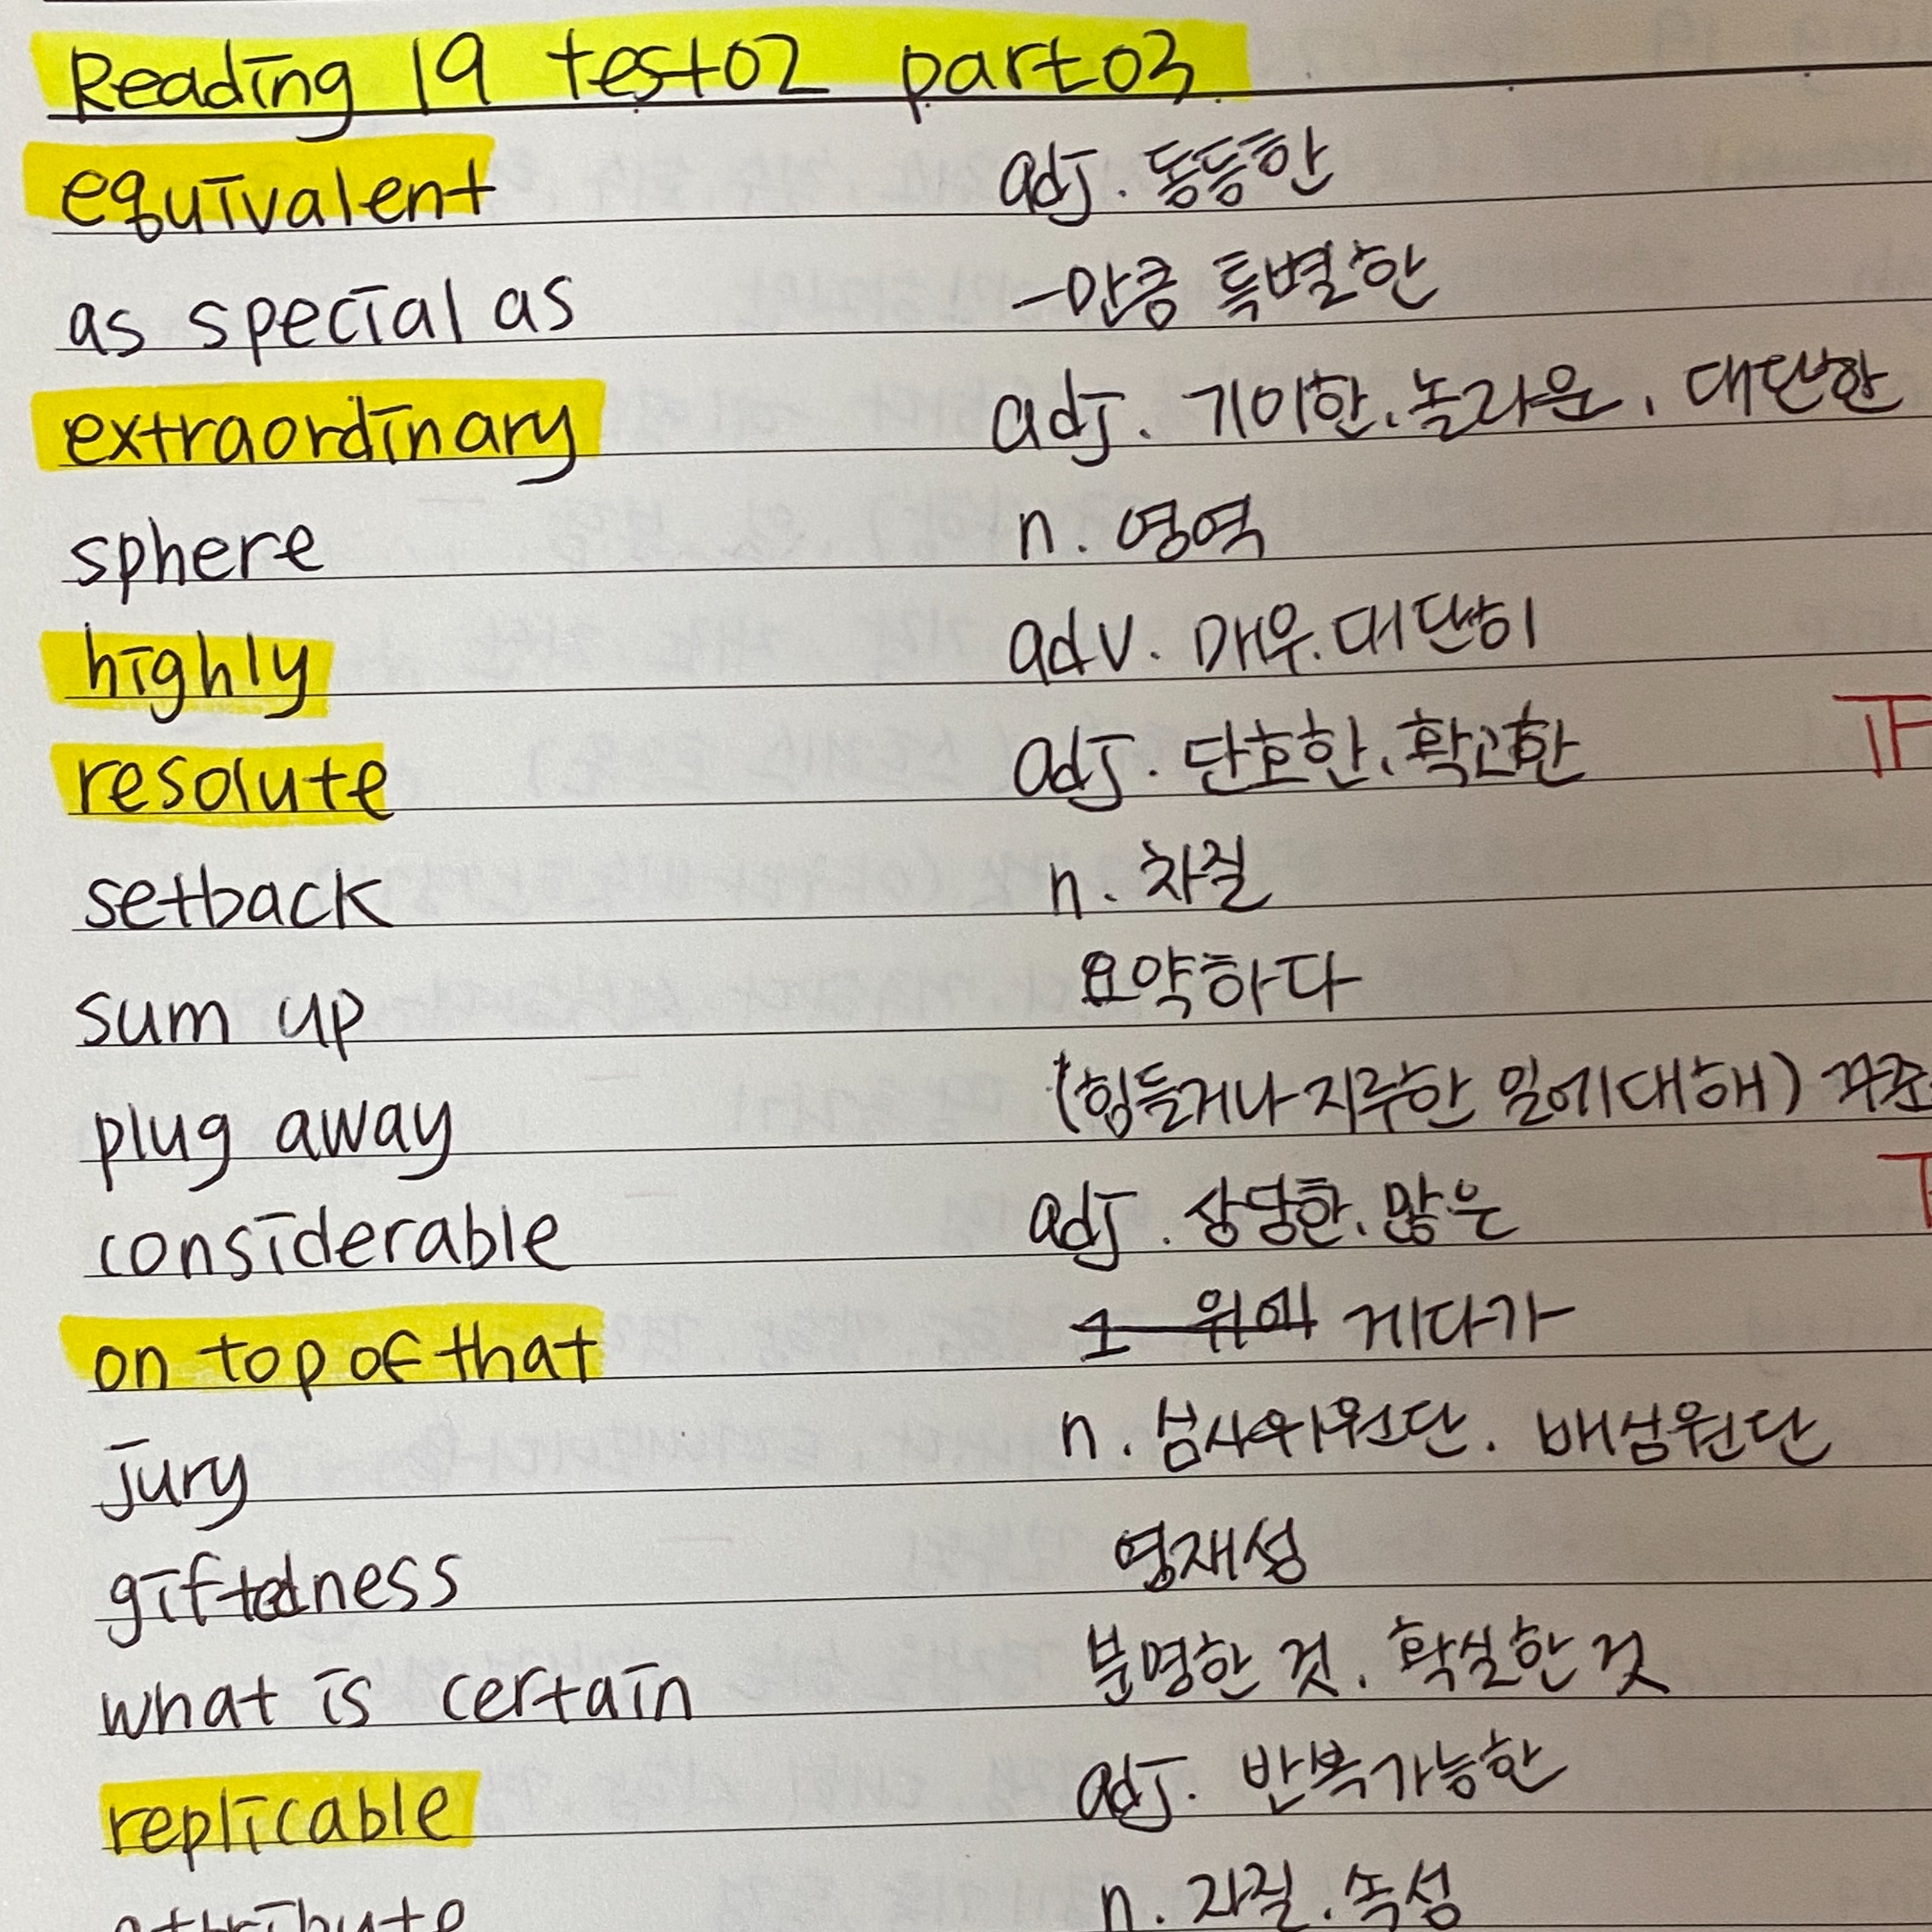 Reading 19 test02 part03
equivalent adj. 동등한
as special as -만큼 특별한
extraordinary adj. 기이한, 놀라운, 대단한
sphere n. 영역
highly adv. 매우. 대단히
resolute adj. 단호한, 확고한
setback n. 차질
sum up 요약하다
plug away (힘들거나 지루한 일에 대해)
considerable adj. 상당한, 많은
on top of that 게다가
jury n. 심사위원단. 배심원단
giftedness 영재성
what is certain 분명한 것, 확실한 것
replicable adj. 반복가능한
attribute n. 자질. 속성